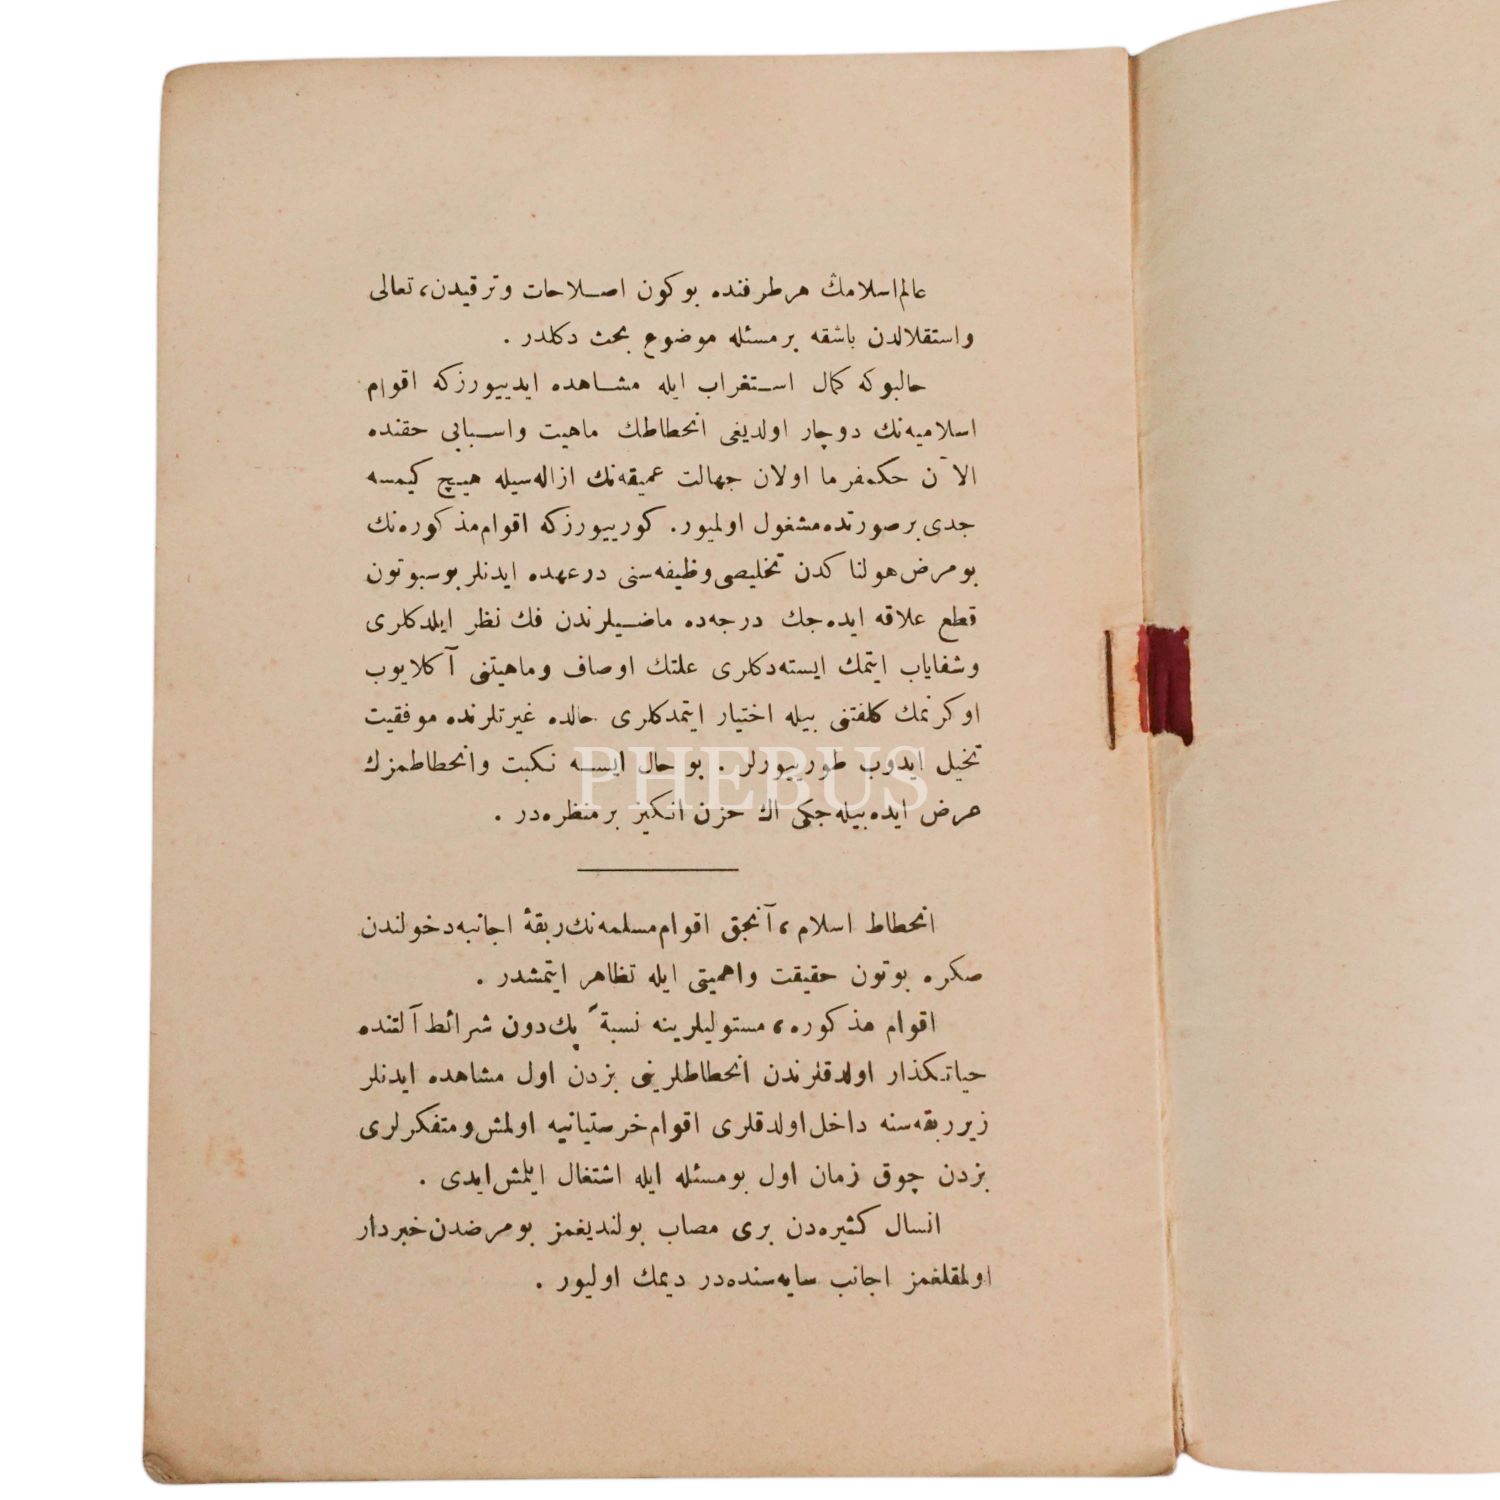 عالم اسلامڭ هر طرفنده بوكون اصلاحات وترقيدن، تعالى
واستقلالدن باشقه برمسئله موضوع بحث دكلدر .
حالبوكه كمال استغراب ايله مشاهده ايدييورزكه اقوام
اسلاميه‌نك دوچار اولديغى انحطاطك ماهيت واسبابى حقنده
الآن حكمفرما اولان جهالت عميقه‌نك ازاله‌سيله هيچ كيمسه
جدى برصورتده مشغول اولميور. كورييورزكه اقوام مذكوره‌نك
بومرض هولناكدن تخليصى وظيفه‌سنى درعهده ايدنلر بوسبوتون
قطع علاقه ايده‌جك درجه‌ده ماضيلرندن فك نظر ايلدكلرى
وشفاياب ايتمك ايسته‌دكلرى علتك اوصاف وماهيتنى آكلايوب
اوكرنمك كلفتنى بيله اختيار ايتمدكلرى حالده غيرتلرنده موفقيت
تخيل ايدوب طورييورلر . بو حال ايسه نكبت وانحطاطمزك
عرض ايده‌بيله‌جكى اڭ حزن انكيز برمنظره‌در .
انحطاط اسلام، آنجق اقوام مسلمه‌نك ربقۀ اجانبه دخولندن
صكره بوتون حقيقت واهميتى ايله تظاهر ايتمشدر .
اقوام مذكوره، مستوليلرينه نسبةً پك دون شرائط آلتنده
حياتكذار اولدقلرندن انحطاطلرينى بزدن اول مشاهده ايدنلر
زير ربقه‌سنه داخل اولدقلرى اقوام خرستيانيه اولمش ومتفكرلرى
بزدن چوق زمان اول بومسئله ايله اشتغال ايتمش ايدى .
انسال كثيره‌دن برى مصاب بولنديغمز بومرضدن خبردار
اولمقلغمز اجانب سايه‌سنده‌در ديمك اوليور .
PHEBUS